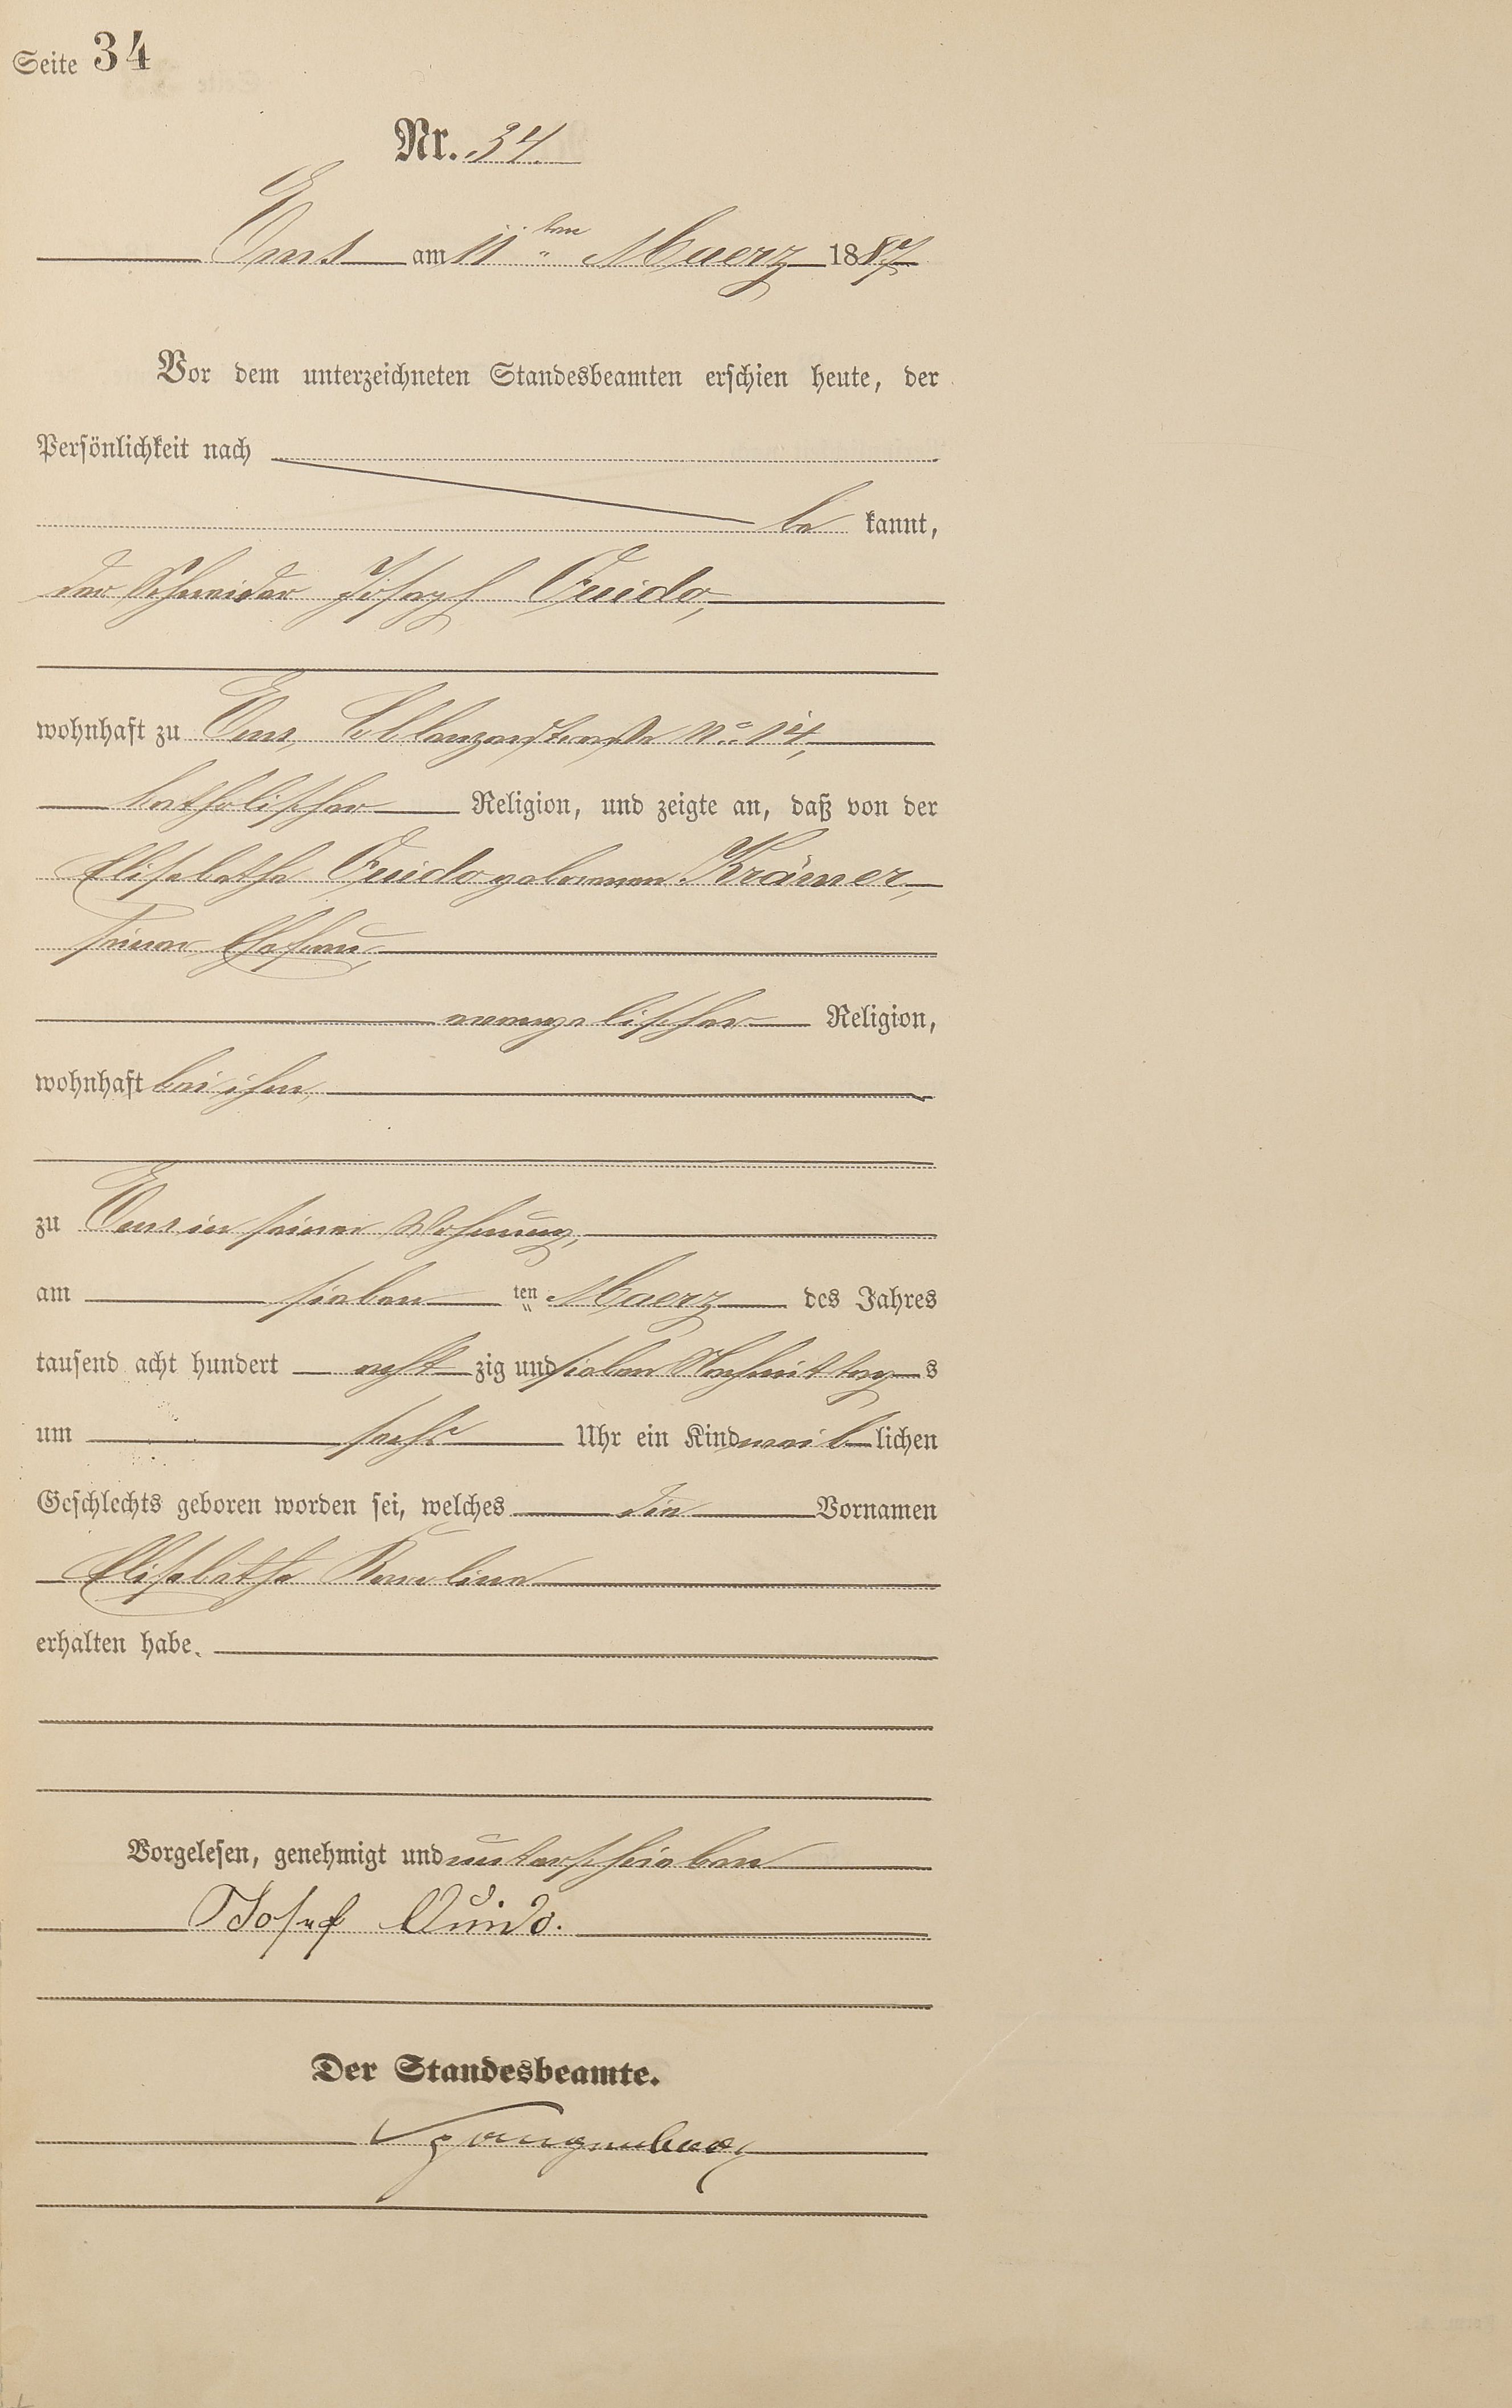 Seite 34
Nr. 34
Ems am 11ten Maerz 1887
Vor dem unterzeichneten Standesbeamten erschien heute, der
Persönlichkeit nach
be kannt,
der Schneider Joseph Quido,
wohnhaft zu Ems, Coblenzerstraße No 14,
katholischer Religion, und zeigte an, daß von der
Elisabetha Quido geborenen Krämer,
seiner Ehefrau,
evangelischer Religion,
wohnhaft bei ihm,
zu Ems in seiner Wohnung,
am sieben ten Maerz des Jahres
tausend acht hundert acht zig und sieben Nachmittag s
um sechs Uhr ein Kind weib lichen
Geschlechts geboren worden sei, welches die Vornamen
Elisabetha Karoline
erhalten habe.
Vorgelesen, genehmigt und unterschrieben
Josef Quido.
Der Standesbeamte.